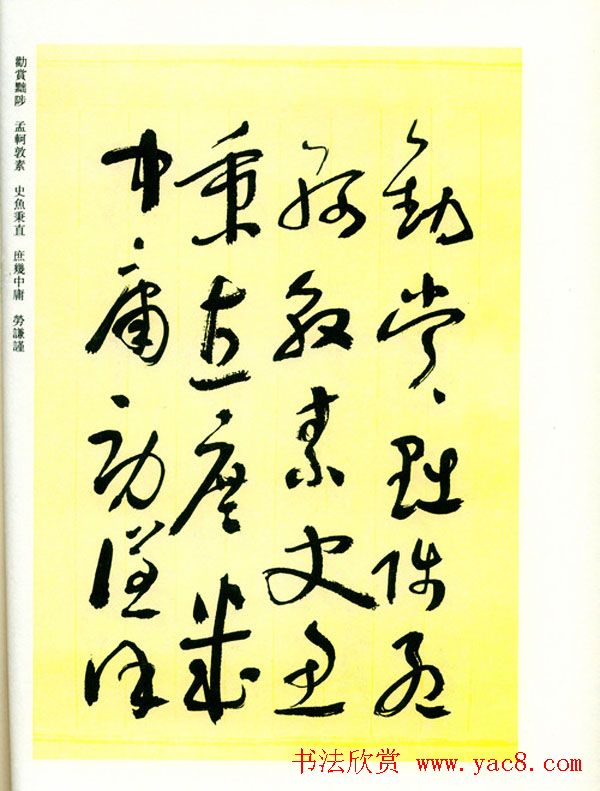 勸賞黜陟孟
軻敦素史魚
秉直庶幾
中庸勞謙謹
勸賞黜陟 孟軻敦素 史魚秉直 庶幾中庸 勞謙謹
书法欣赏 www.yac8.com